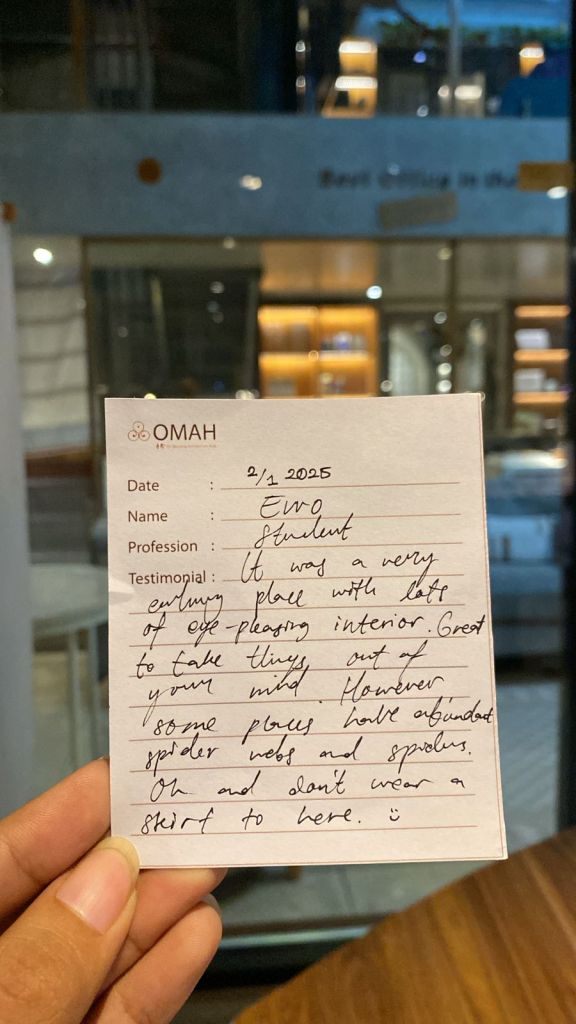 Best Office in the
OMAH
Date : 2/1 2025
Name : Ewo
Profession : Student
Testimonial : It was a very
place with lots
of eye-pleasing interior. Great
to take things out of
your mind. However,
some places have abundant
spider webs and spiders.
Oh and don't wear a
skirt to here. :)